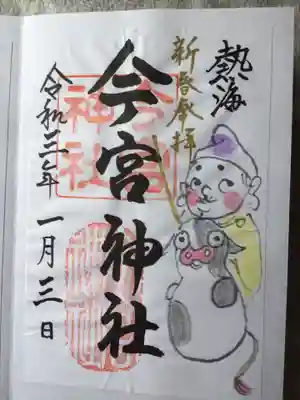 熱海
新春奉拝
今宮神社
今宮
神社
令和三年
一月三日